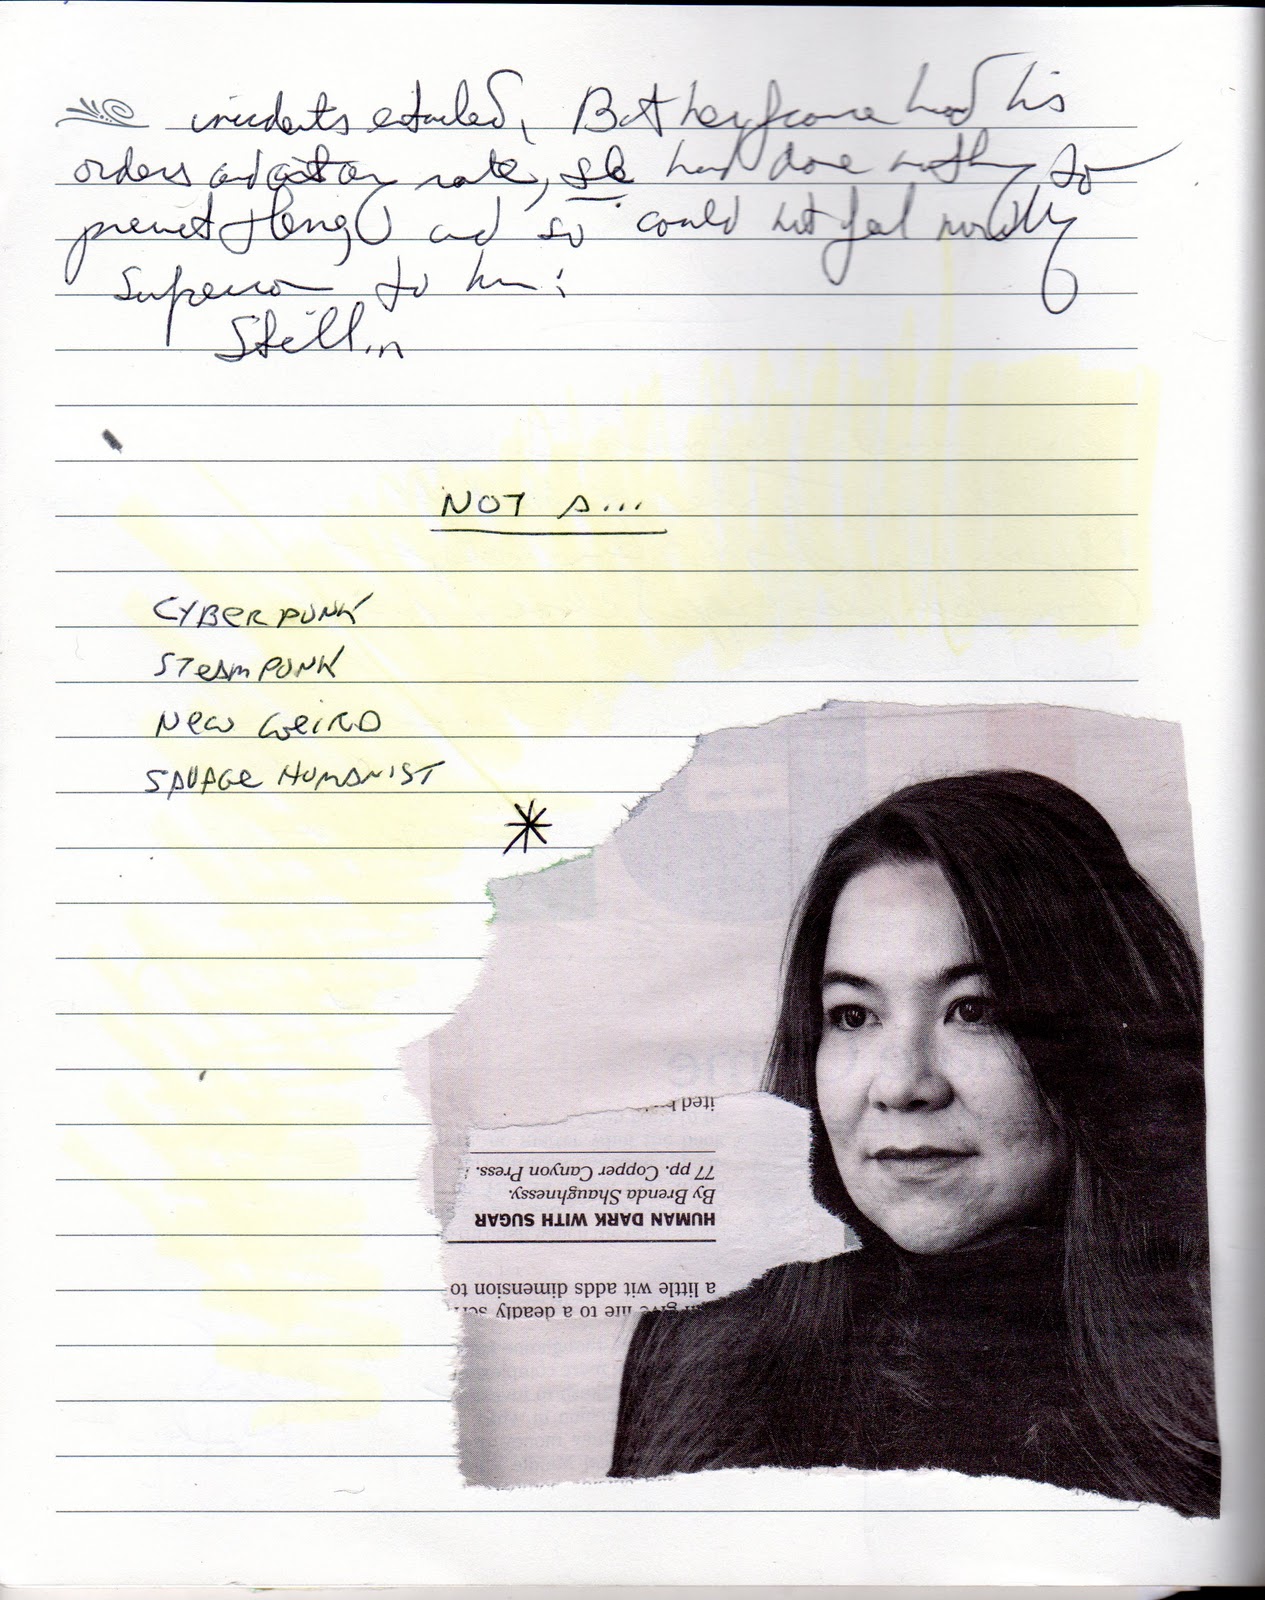 incidents entailed, But heyfrome had his
orders and at any rate, she had done nothing to
prevent things and so could not feel morally
Superior to him:
Still in
NOT A...
CYBERPUNK
STEAMPUNK
NEW WEIRD
SAVAGE HUMANIST
HUMAN DARK WITH SUGAR
By Brenda Shaughnessy.
77 pp. Copper Canyon Press.
a little wit adds dimension to
life to a deadly